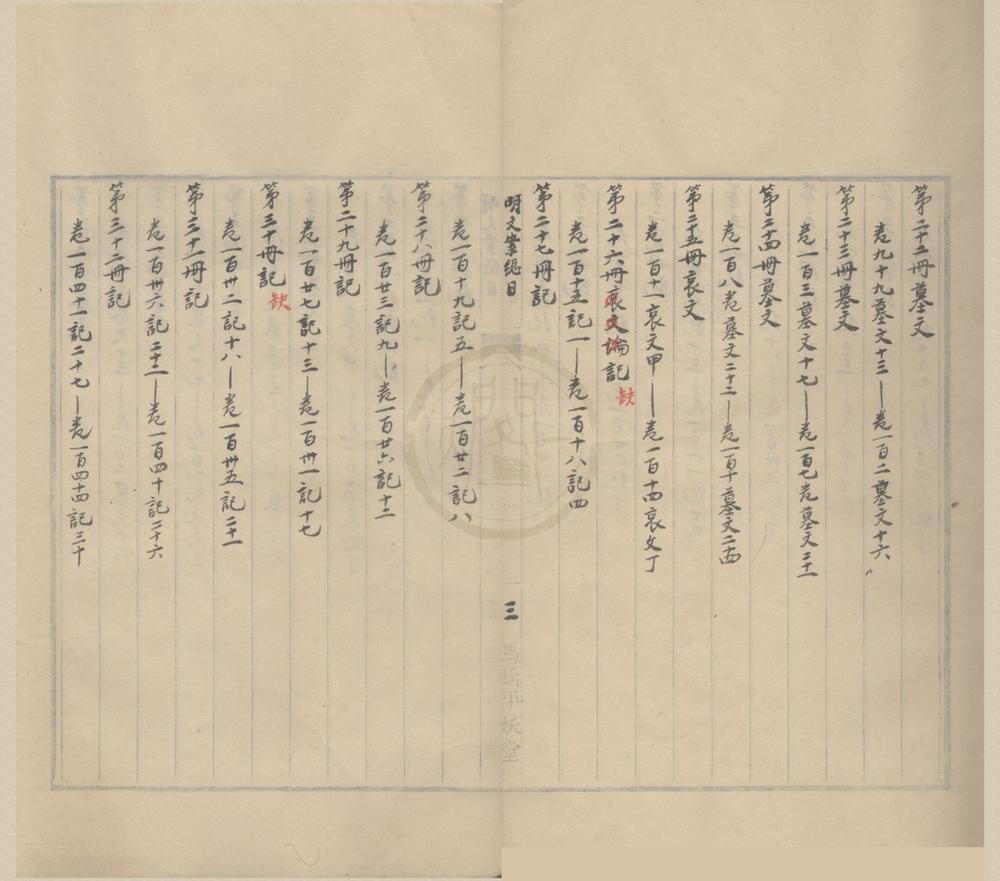 第二十二冊墓文
卷九十九墓文十三—卷一百二墓文十六
第二十三冊墓文
卷一百三墓文十七—卷一百七卷墓文二十一
第二十四冊墓文
卷一百八卷墓文二十二—卷一百十墓文二十四
第二十五冊哀文
卷一百十一哀文甲—卷一百十四哀文丁
第二十六冊哀文論記 缺
卷一百十五記一—卷一百十八記四
第二十七冊記
明文案總目
三
馬氏平妖堂
卷一百十九記五—卷一百廿二記八
第二十八冊記
卷一百廿三記九—卷一百廿六記十二
第二十九冊記
卷一百廿七記十三—卷一百卅一記十七
第三十冊記 缺
卷一百卅二記十八—卷一百卅五記二十一
第三十一冊記
卷一百卅六記二十二—卷一百四十記二十六
第三十二冊記
卷一百四十一記二十七—卷一百四十四記三十